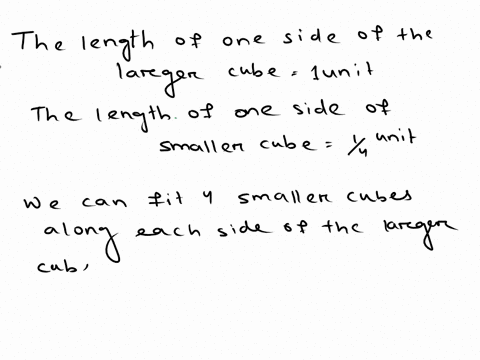 The length of one side of the
lareger cube = 1 unit
The length. of one side of
smaller cube = 1/4 unit
we can fit 4 smaller cubes
along each side of the lareger
cub,